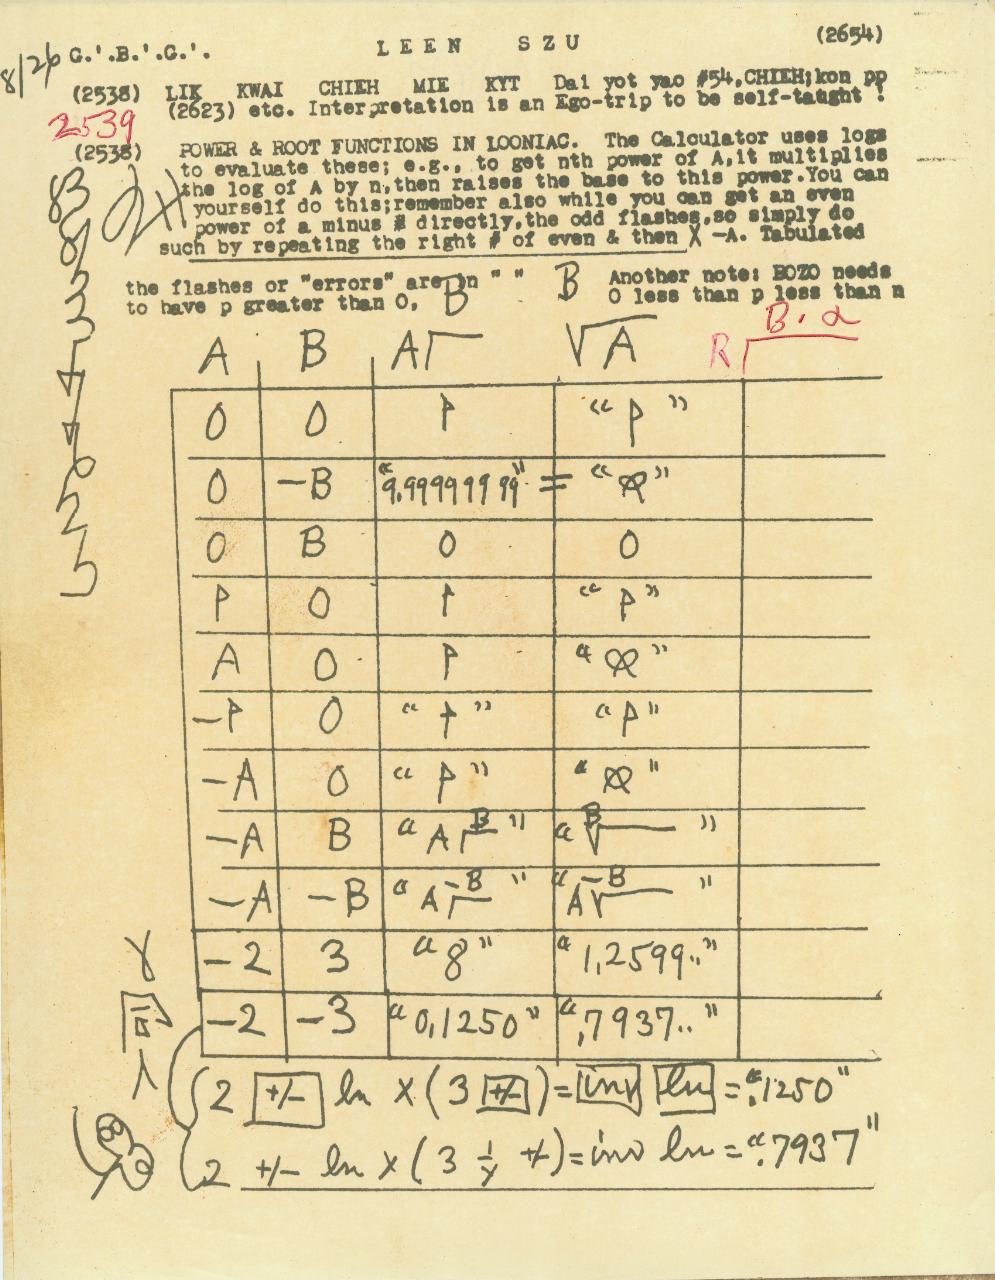 8/26 G.'.B.'.G.'. LEEN SZU (2654)
(2538) LIK KWAI CHIEH MIE KYT Dai yot yao #54,CHIEH;kon pp
(2623) etc. Interpretation is an Ego-trip to be self-taught !
2539
(2538) POWER & ROOT FUNCTIONS IN LOONIAC. The Calculator uses logs
to evaluate these; e.g., to get nth power of A,it multiplies
the log of A by n,then raises the base to this power.You can
yourself do this;remember also while you can get an even
power of a minus # directly,the odd flashes,so simply do
such by repeating the right # of even & then X -A. Tabulated
the flashes or "errors" are in " " B Another note: BOZO needs
to have p greater than 0, B 0 less than p less than n
A B A√ √A R B.α
0 0 1 "1"
0 -B "9.99999999" = "
0 B 0 0
P 0 1 "P"
A 0 1
-P 0 "1" "P"
-A 0 "P"
-A B "A B" "B√ "
-A -B "A -B" "A√ -B "
-2 3 "8" "1,2599.."
-2 -3 "0,1250" ",7937.."
2 +/- ln X (3 +/-) = inv ln = ".1250"
2 +/- ln X (3 1/x +/-) = inv ln = ".7937"